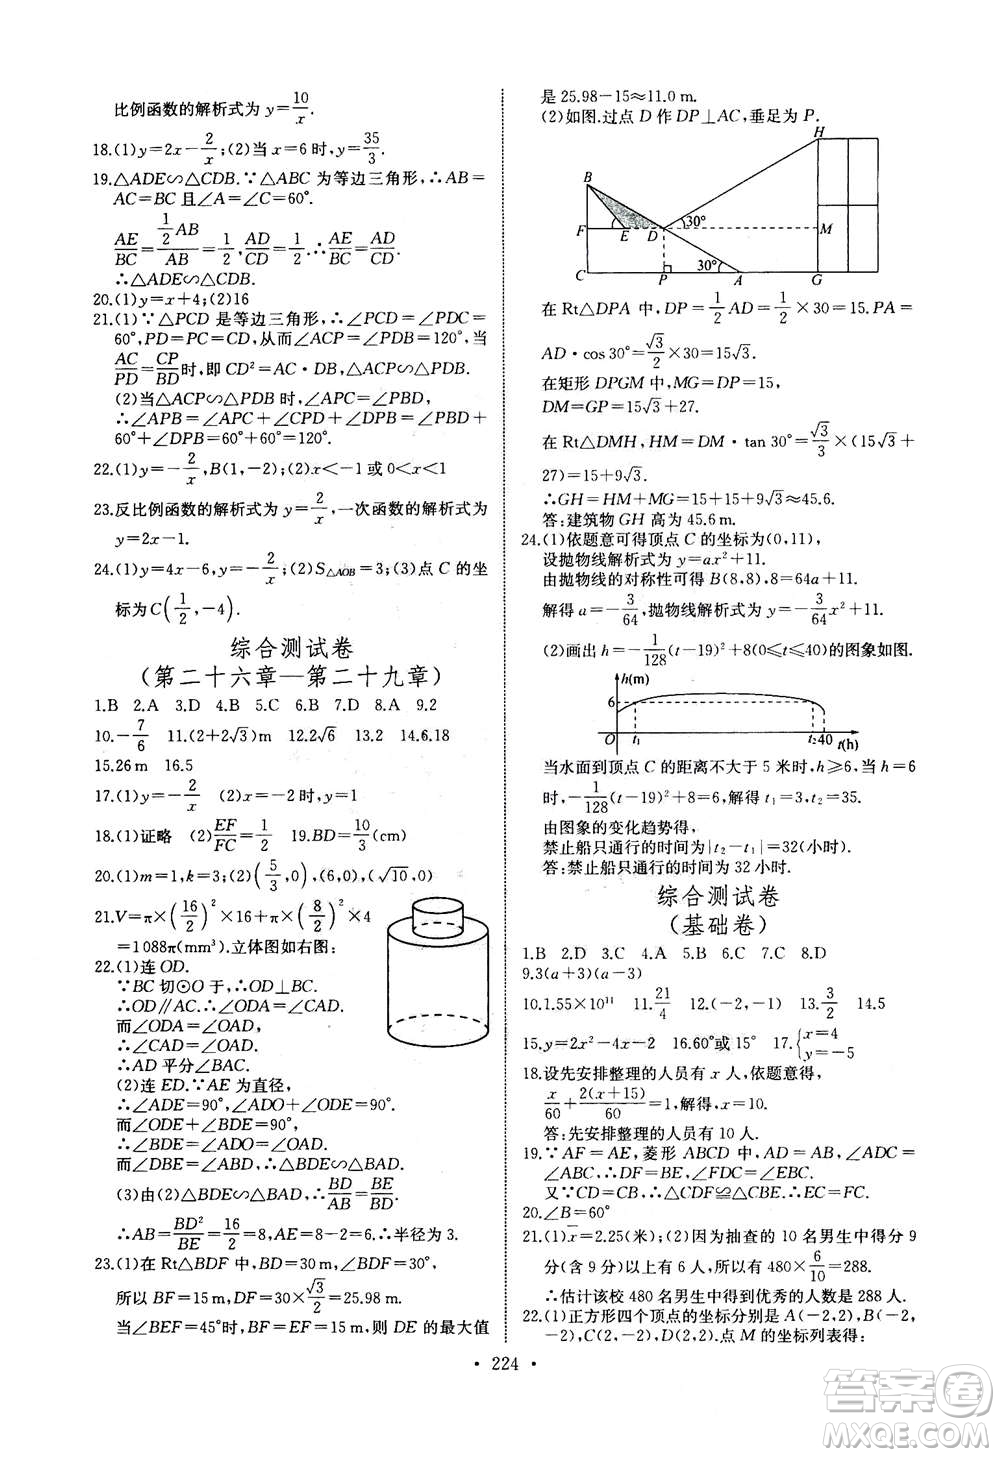 比例函数的解析式为 y=10/x.
18.(1)y=2x-2/x;(2)当 x=6 时,y=35/3.
19.△ADE∽△CDB.∵△ABC 为等边三角形,∴AB=
AC=BC 且∠A=∠C=60°.
AE/BC=(1/2 AB)/AB=1/2,AD/CD=1/2,∴AE/BC=AD/CD.
∴△ADE∽△CDB.
20.(1)y=x+4;(2)16
21.(1)∵△PCD 是等边三角形,∴∠PCD=∠PDC=
60°,PD=PC=CD,从而∠ACP=∠PDB=120°,当
AC/PD=CP/BD时,即 CD²=AC·DB,△ACP∽△PDB.
(2)当△ACP∽△PDB 时,∠APC=∠PBD,
∴∠APB=∠APC+∠CPD+∠DPB=∠PBD
+60°+∠DPB=60°+60°=120°.
22.(1)y=-2/x,B(1,-2);(2)x<-1 或 0<x<1
23.反比例函数的解析式为 y=2/x,一次函数的解析式为
y=2x-1.
24.(1)y=4x-6,y=-2/x;(2)S△AOB=3;(3)点 C 的坐
标为 C(1/2,-4).
综合测试卷
(第二十六章—第二十九章)
1.B 2.A 3.D 4.B 5.C 6.B 7.D 8.A 9.2
10.-7/6 11.(2+2√3)m 12.2√6 13.2 14.6.18
15.26 m 16.5
17.(1)y=-2/x (2)x=-2 时,y=1
18.(1)证略 (2)EF/FC=1/2 19.BD=10/3(cm)
20.(1)m=1,k=3;(2)(5/3,0),(6,0),(√10,0)
21.V=π×(16/2)²×16+π×(8/2)²×4
=1 088π(mm³).立体图如右图:
22.(1)连 OD.
∵BC 切⊙O 于,∴OD⊥BC.
∴OD∥AC.∴∠ODA=∠CAD.
而∠ODA=∠OAD,
∴∠CAD=∠OAD.
∴AD 平分∠BAC.
(2)连 ED.∵AE 为直径,
∴∠ADE=90°,∠ADO+∠ODE=90°.
而∠ODE+∠BDE=90°,
∴∠BDE=∠ADO=∠OAD.
而∠DBE=∠ABD,∴△BDE∽△BAD.
(3)由(2)△BDE∽△BAD,∴BD/AB=BE/BD.
∴AB=BD²/BE=16/2=8,AE=8-2=6,∴半径为 3.
23.(1)在 Rt△BDF 中,BD=30 m,∠BDF=30°,
所以 BF=15 m,DF=30×√3/2≈25.98 m.
当∠BEF=45°时,BF=EF=15 m,则 DE 的最大值
是 25.98-15≈11.0 m.
(2)如图.过点 D 作 DP⊥AC,垂足为 P.
H
B
F E D 30° M
30°
C P A G
在 Rt△DPA 中,DP=1/2 AD=1/2×30=15.PA=
AD·cos 30°=√3/2×30=15√3.
在矩形 DPGM 中,MG=DP=15,
DM=GP=15√3+27.
在 Rt△DMH,HM=DM·tan 30°=√3/3×(15√3+
27)=15+9√3.
∴GH=HM+MG=15+15+9√3≈45.6.
答:建筑物 GH 高为 45.6 m.
24.(1)依题意可得顶点 C 的坐标为(0,11),
设抛物线解析式为 y=ax²+11.
由抛物线的对称性可得 B(8,8),∴8=64a+11.
解得 a=-3/64,抛物线解析式为 y=-3/64x²+11.
(2)画出 h=-1/128(t-19)²+8(0≤t≤40)的图象如图.
h(m)
6
O t₁ t₂ 40 t(h)
当水面到顶点 C 的距离不大于 5 米时,h≥6,当 h=6
时,-1/128(t-19)²+8=6,解得 t₁=3,t₂=35.
由图象的变化趋势得,
禁止船只通行的时间为|t₂-t₁|=32(小时).
答:禁止船只通行的时间为 32 小时.
综合测试卷
(基础卷)
1.B 2.D 3.C 4.A 5.C 6.A 7.C 8.D
9.3(a+3)(a-3)
10.1.55×10¹¹ 11.21/4 12.(-2,-1) 13.3/2 14.5
15.y=2x²-4x-2 16.60°或 15° 17.{x=4 y=-5
18.设先安排整理的人员有 x 人,依题意得,
x/60+2(x+15)/60=1,解得,x=10.
答:先安排整理的人员有 10 人.
19.∵AF=AE,菱形 ABCD 中,AD=AB,∠ADC=
∠ABC,∴DF=BE,∠FDC=∠EBC.
又∵CD=CB,∴△CDF≌△CBE.∴EC=FC.
20.∠B=60°
21.(1)x̄=2.25(米);(2)因为抽查的 10 名男生中得分 9
分(含 9 分)以上有 6 人,所以有 480×6/10=288.
∴估计该校 480 名男生中得到优秀的人数是 288 人.
22.(1)正方形四个顶点的坐标分别是 A(-2,2),B(-2,
-2),C(2,-2),D(2,2).点 M 的坐标列表得:
• 224 •
答案卷
MXQE.COM